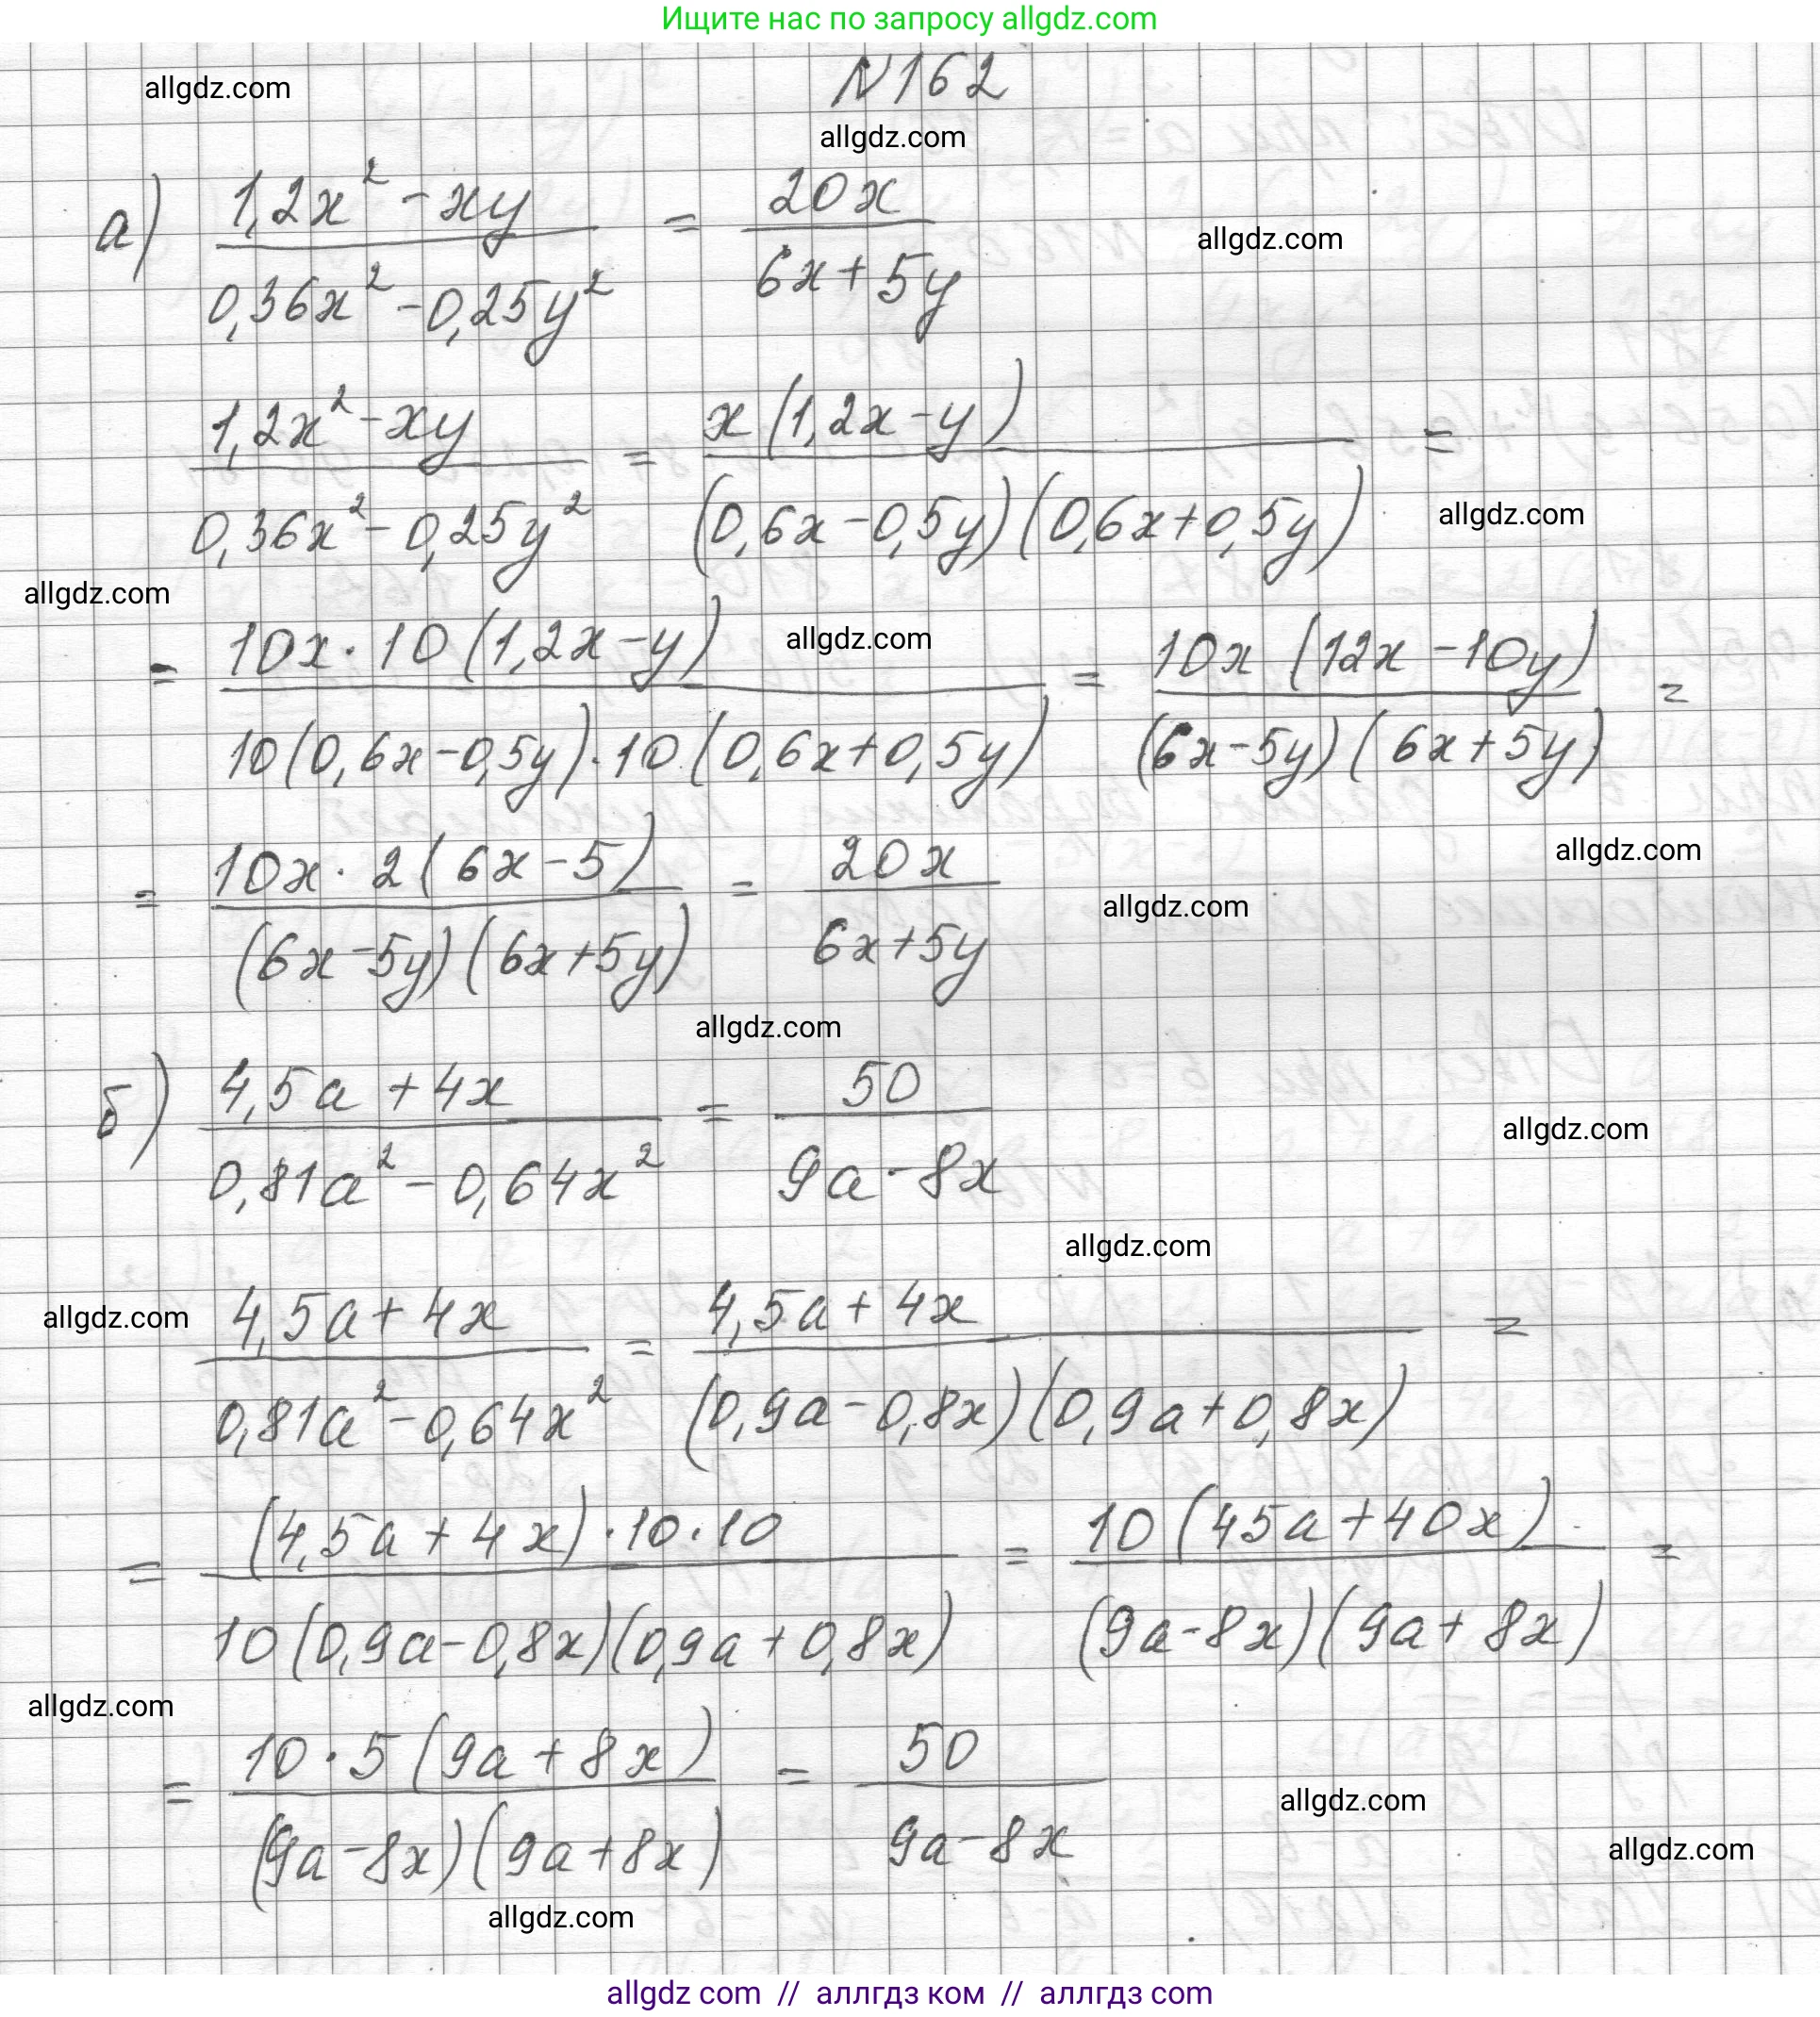 Ищите нас по запросу allgdz.com
N162
allgdz.com
allgdz.com
а) (1,2x² - xy)/(0,36x² - 0,25y²) = 20x/(6x + 5y)
allgdz.com
(1,2x² - xy)/(0,36x² - 0,25y²) = x(1,2x - y)/((0,6x - 0,5y)(0,6x + 0,5y)) =
allgdz.com
allgdz.com
= (10x · 10(1,2x - y))/(10(0,6x - 0,5y) · 10(0,6x + 0,5y)) = 10x(12x - 10y)/((6x - 5y)(6x + 5y)) =
allgdz.com
= (10x · 2(6x - 5))/((6x - 5y)(6x + 5y)) = 20x/(6x + 5y)
allgdz.com
allgdz.com
allgdz.com
б) (4,5a + 4x)/(0,81a² - 0,64x²) = 50/(9a - 8x)
allgdz.com
allgdz.com
allgdz.com
(4,5a + 4x)/(0,81a² - 0,64x²) = (4,5a + 4x)/((0,9a - 0,8x)(0,9a + 0,8x)) =
= ((4,5a + 4x) · 10 · 10)/(10(0,9a - 0,8x)(0,9a + 0,8x)) = 10(45a + 40x)/((9a - 8x)(9a + 8x)) =
allgdz.com
= (10 · 5(9a + 8x))/((9a - 8x)(9a + 8x)) = 50/(9a - 8x)
allgdz.com
allgdz.com
allgdz.com
allgdz com // аллгдз ком // аллгдз com